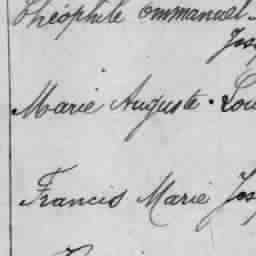 Théophile Emmanuel
Jos
Marie Auguste. Lou
Francis Marie Jos